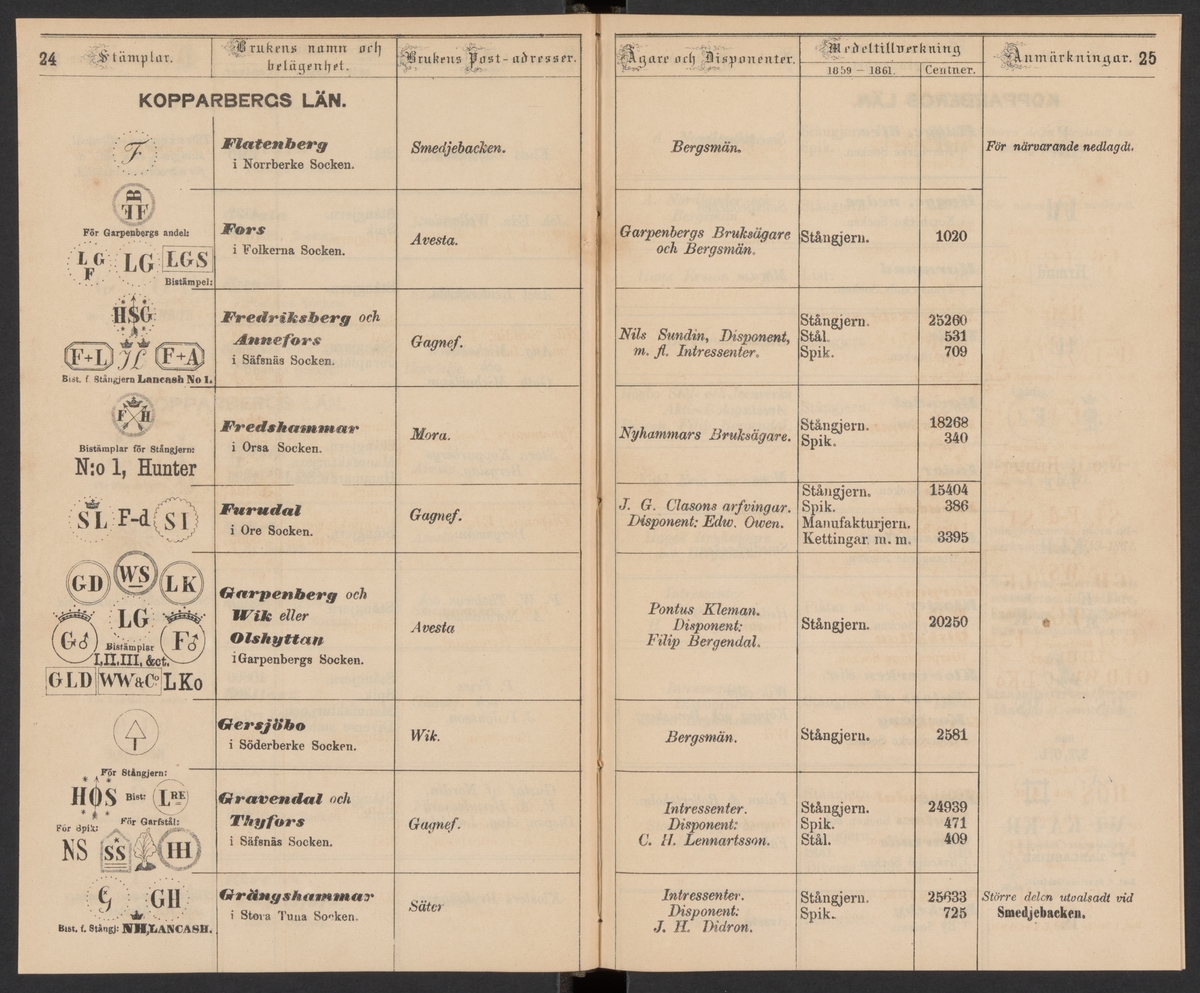 24
Stämplar.
Brukens namn och
belägenhet.
Brukens Post-adresser.
Ägare och Disponenter.
Medeltillverkning
1859 – 1861.
Centner.
Anmärkningar.
25
KOPPARBERGS LÄN.
F
Flatenberg
i Norrberke Socken.
Smedjebacken.
Bergsmän.
För närvarande nedlagdt.
B
FF
För Garpenbergs andel:
L G
F
LG
LGS
Bistämpel:
Fors
i Folkerna Socken.
Avesta.
Garpenbergs Bruksägare
och Bergsmän.
Stångjern.
1020
HSG
F+L
H
F+A
Bist. f. Stångjern Lancash No 1.
Fredriksberg och
Annefors
i Säfsnäs Socken.
Gagnef.
Nils Sundin, Disponent,
m. fl. Intressenter.
Stångjern. 25260
Stål. 531
Spik. 709
F H
Bistämplar för Stångjern:
N:o 1, Hunter
Fredshammar
i Orsa Socken.
Mora.
Nyhammars Bruksägare.
Stångjern. 18268
Spik. 340
SL F-d SI
Furudal
i Ore Socken.
Gagnef.
J. G. Clasons arfvingar.
Disponent: Edw. Owen.
Stångjern. 15404
Spik. 386
Manufakturjern.
Kettingar m. m. 3395
GD WS LK
LG
G♂ Bistämplar F♂
I,II,III, &ct.
GLD WW&Co LKo
Garpenberg och
Wik eller
Olshyttan
i Garpenbergs Socken.
Avesta
Pontus Kleman.
Disponent:
Filip Bergendal.
Stångjern. 20250
Gersjöbo
i Söderberke Socken.
Wik.
Bergsmän.
Stångjern. 2581
För Stångjern:
HOS Bist: LRE
För Spik: För Garfstål:
NS SS HH
Gravendal och
Thyfors
i Säfsnäs Socken.
Gagnef.
Intressenter.
Disponent:
C. H. Lennartsson.
Stångjern. 24939
Spik. 471
Stål. 409
G GH
Bist. f. Stångj: NH, LANCASH.
Grängshammar
i Stora Tuna Socken.
Säter
Intressenter.
Disponent:
J. H. Didron.
Stångjern. 25633
Spik. 725
Större delen utvalsadt vid
Smedjebacken.